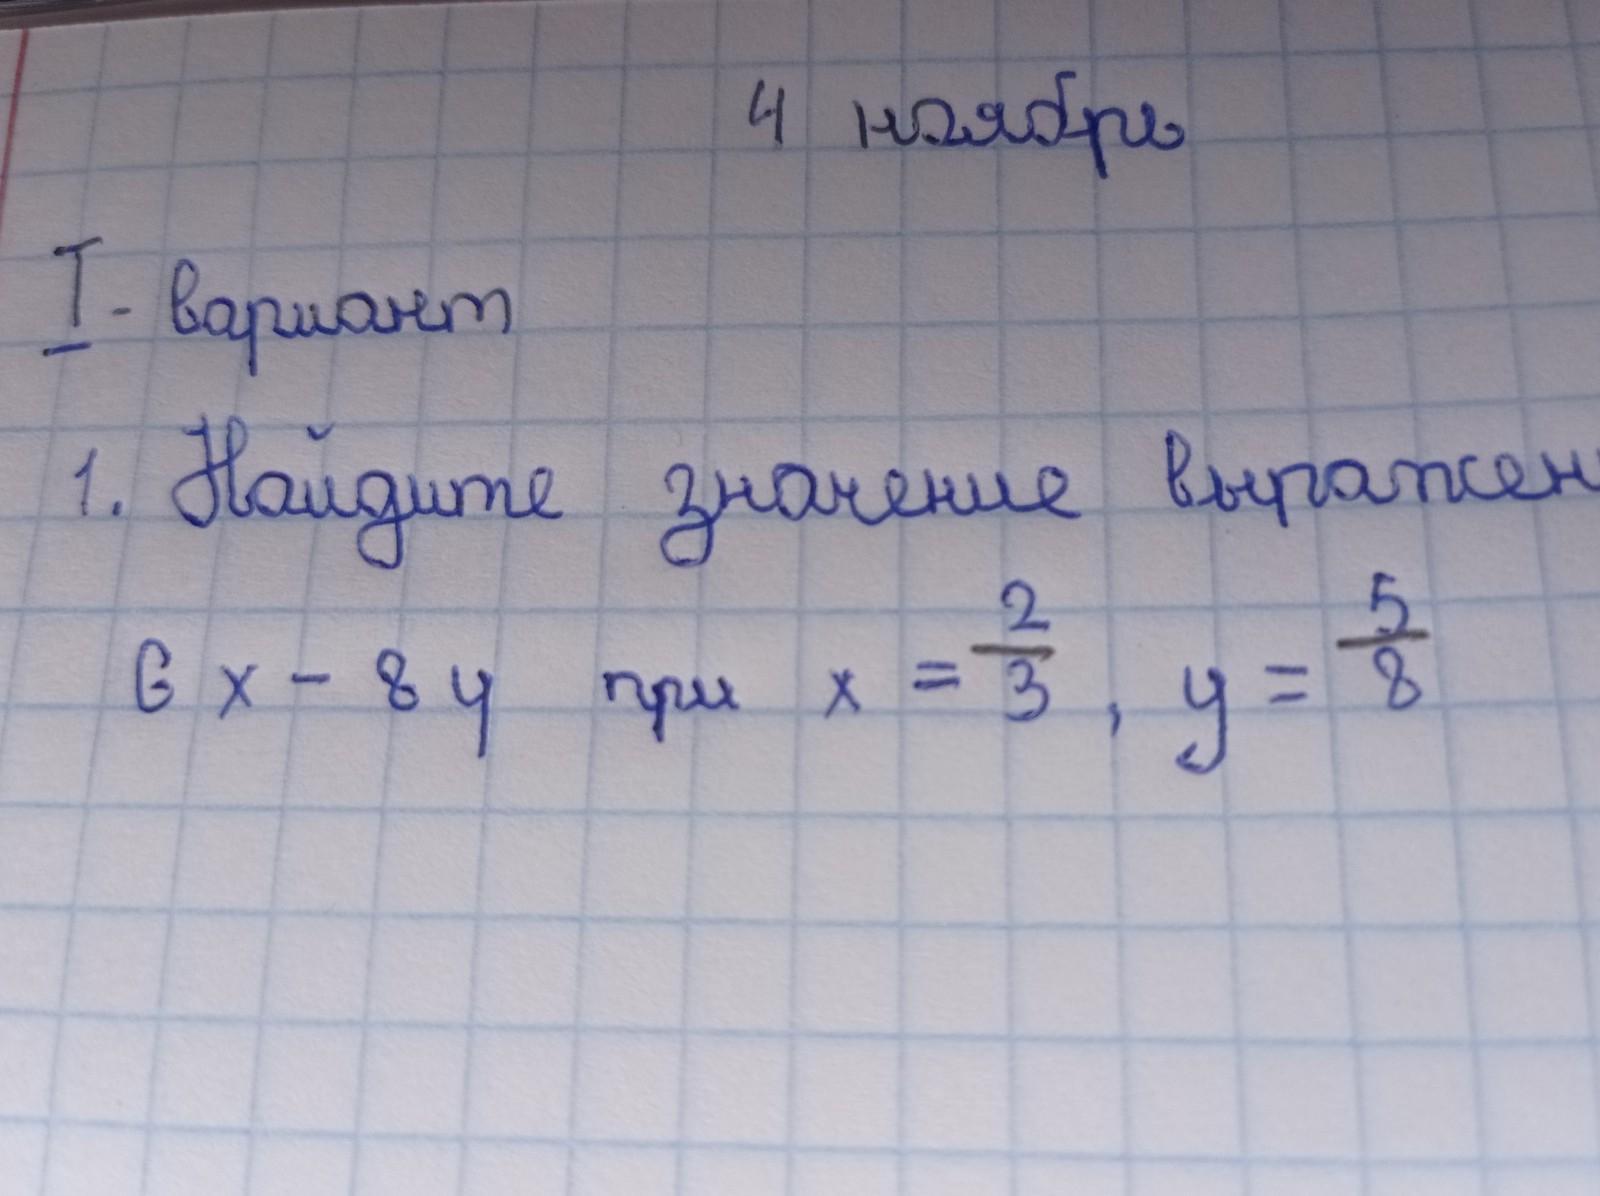 4 ноябрь
I - вариант
1. Найдите значение выражен
6x - 8y при x = 2/3, y = 5/8